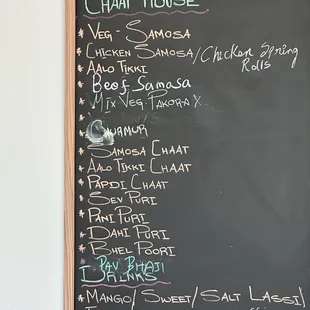 CHAAT HOUSE
* VEG - SAMOSA
* CHICKEN SAMOSA/Chicken Spring Rolls
* AALO TIKKI
* Beef Samasa
* MIX VEG. PAKORA X
*
* CHURMUR
* SAMOSA CHAAT
* AALO TIKKI CHAAT
* PAPDI CHAAT
* SEV PURI
* PANI PURI
* DAHI PURI
* BHEL POORI
* PAV BHAJI
DRINKS
* MANGO/SWEET/SALT LASSI